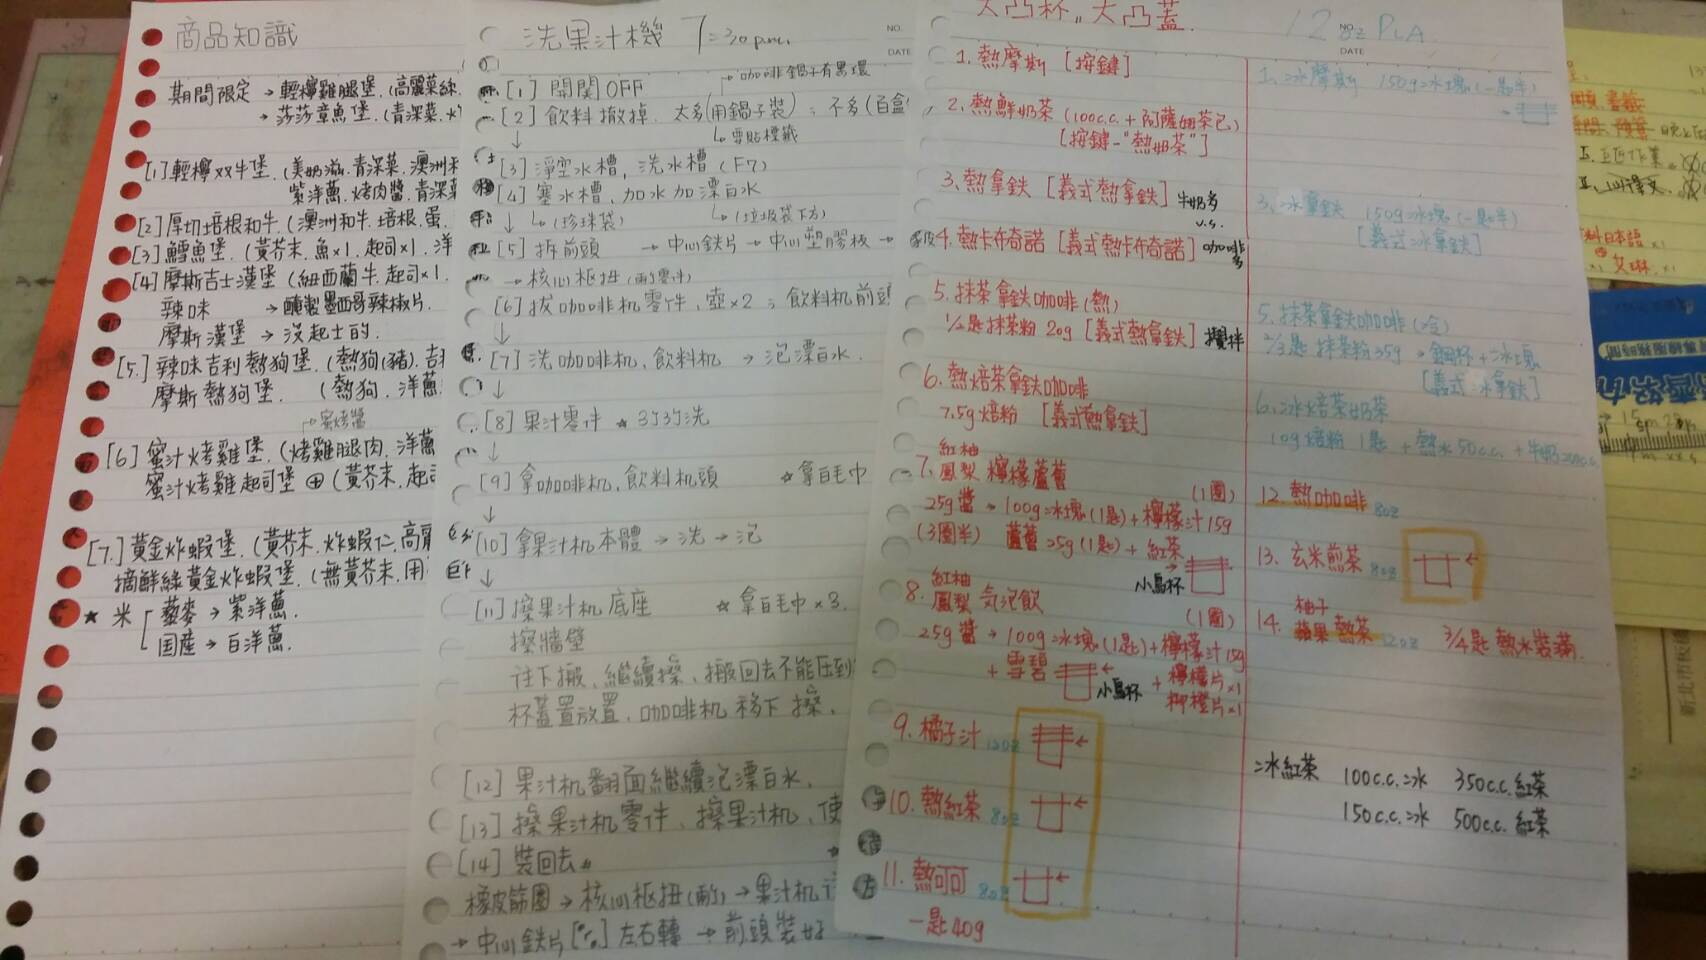 商品知識
期間限定 → 輕檸雞腿堡.(高麗菜絲.
→ 莎莎章魚堡.(青深菜.
[1] 輕檸双牛堡.(美奶滋.青深菜.澳洲
紫洋蔥.烤肉醬.青深菜
[2] 厚切培根和牛(澳洲和牛.培根.蛋.
[3] 鱈魚堡.(黃芥末.魚x1.起司x1.洋
[4] 摩斯吉士漢堡(紐西蘭牛.起司x1.
辣味 → 醃製墨西哥辣椒片.
摩斯漢堡 → 沒起士的.
[5.] 辣味吉利熱狗堡.(熱狗(豬).吉
摩斯熱狗堡. (熱狗.洋蔥
蜜烤醬
[6] 蜜汁烤雞堡.(烤雞腿肉.洋蔥
蜜汁烤雞起司堡 ⊕ (黃芥末.起司
[7.] 黃金炸蝦堡.(黃芥末.炸蝦仁.高麗
摘鮮綠黃金炸蝦堡.(無黃芥末.用
★ 米 藜麥 → 紫洋蔥.
国産 → 白洋蔥.
洗果汁機 7:30 p.m.
NO.
DATE
咖啡鍋子有黑環
[1] 開関OFF
[2] 飲料撤掉. 太多(用鍋子裝); 不多(百盒
↓ ↳要貼標籤
[3] 淨空水槽, 洗水槽 (F7)
[4] 塞水槽, 加水加漂白水
↓ ↳(珍珠袋) ↳(垃圾袋下方)
[5] 拆前頭 → 中心鉄片 → 中心塑膠板 →
→ 核心枢扭(兩零件)
[6] 拔咖啡机零件, 壺x2; 飲料机前頭
↓
[7] 洗咖啡机, 飲料机 → 泡漂白水.
↓
[8] 果汁零件 ★ 3的3洗
↓
[9] 拿咖啡机, 飲料机頭 ☆拿白毛巾
↓
[10] 拿果汁机本體 → 洗 → 泡
↓
[11] 擦果汁机底座 ☆ 拿白毛巾 x3.
擦牆壁
往下搬, 繼續擦, 搬回去不能压到
杯蓋置放置. 咖啡机移下擦.
[12] 果汁机翻面繼續泡漂白水.
[13] 擦果汁机零件、擦果汁机, 使
[14] 裝回去
橡皮筋圈 → 核心枢扭(兩) → 果汁机
→ 中心鉄片 左右轉 → 前頭裝好
大凸杯,, 大凸蓋.
1. 熱摩斯 [按鍵]
2. 熱鮮奶茶(100c.c. + 阿薩姆茶包)
[按鍵-"熱奶茶"]
3. 熱拿鉄 [義式熱拿鉄] 牛奶多
v.s.
4. 熱卡布奇諾 [義式熱卡布奇諾] 咖啡多
5. 抹茶拿鉄咖啡(熱)
½匙抹茶粉 20g [義式熱拿鉄] 攪拌
6. 熱焙茶拿鉄咖啡
7.5g焙粉 [義式熱拿鉄]
紅柚
7. 鳳梨 檸檬蘆薈
(1圈)
25g醬 → 100g冰塊(1匙)+檸檬汁15g
(3圈半) 蘆薈 25g(1匙)+ 紅茶
小鳥杯
紅柚
8. 鳳梨 気泡飲
(1圈)
25g醬 → 100g冰塊(1匙)+檸檬汁15g
+ 雪碧 小鳥杯 + 檸檬片x1
柳橙片x1
9. 橘子汁 12oz
10. 熱紅茶 8oz
11. 熱可可 8oz
一匙40g
12 oz PLA.
NO.
DATE
1. 冰摩斯 150g冰塊(一匙半)
3. 冰拿鉄 150g冰塊(一匙半)
[義式冰拿鉄]
5. 抹茶拿鉄咖啡(冷)
⅔匙 抹茶粉35g → 鋼杯+冰塊
[義式冰拿鉄]
6. 冰焙茶奶茶
10g焙粉 1匙 + 熱水50c.c. + 牛奶200c.c.
12. 熱咖啡 8oz
13. 玄米煎茶 8oz
柚子
14. 蘋果 熱茶 12oz ¾匙 熱水裝滿.
冰紅茶 100c.c.冰 350c.c.紅茶
150c.c.冰 500c.c.紅茶
日本語 x1
艾琳. x1